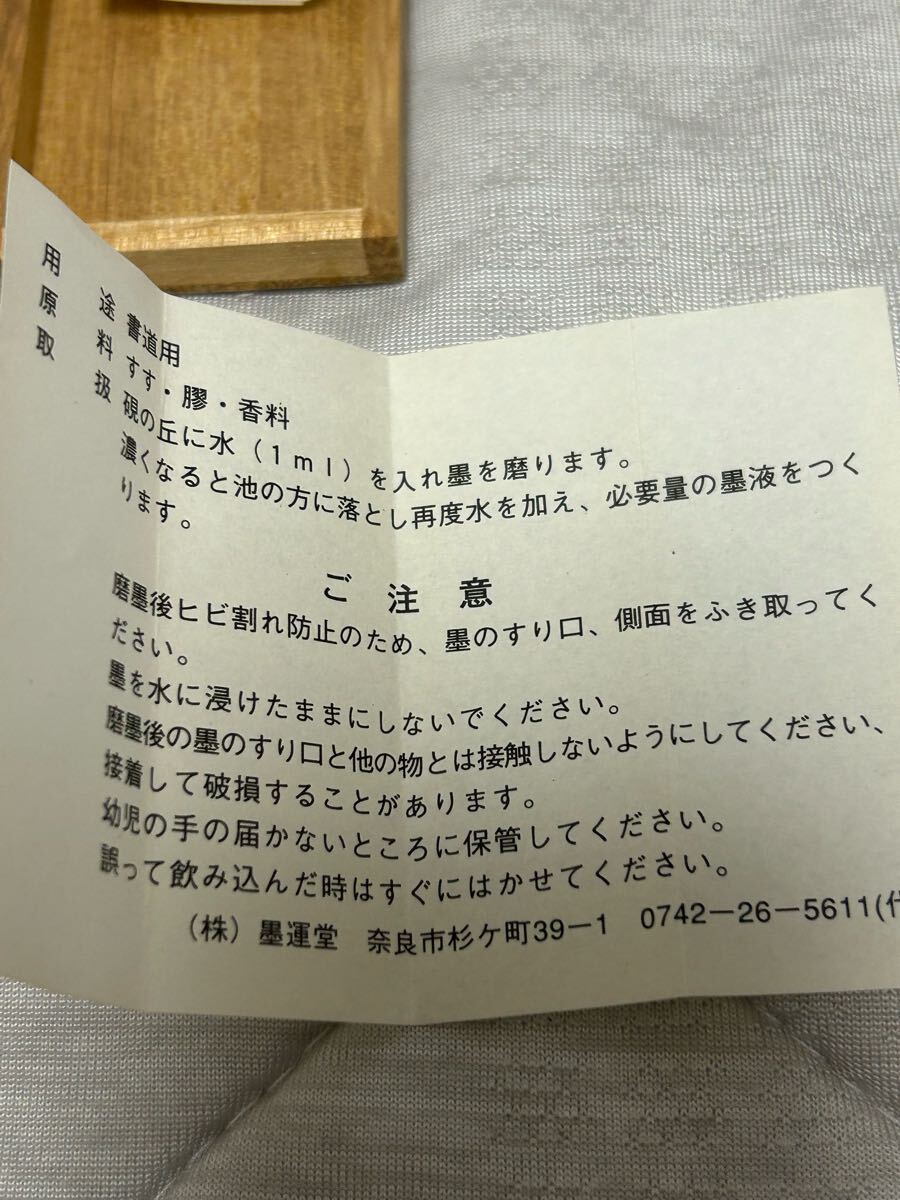 用　途　書道用
原　料　すす・膠・香料
取　扱　硯の丘に水（1ml）を入れ墨を磨ります。
濃くなると池の方に落とし再度水を加え、必要量の墨液をつく
ります。
ご注意
磨墨後ヒビ割れ防止のため、墨のすり口、側面をふき取ってく
ださい。
墨を水に浸けたままにしないでください。
磨墨後の墨のすり口と他の物とは接触しないようにしてください、
接着して破損することがあります。
幼児の手の届かないところに保管してください。
誤って飲み込んだ時はすぐにはかせてください。
（株）墨運堂　奈良市杉ケ町39－1　0742－26－5611(代